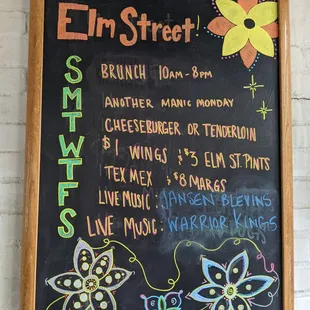 Elm Street!
S BRUNCH 10AM-8PM
M ANOTHER MANIC MONDAY
T CHEESEBURGER OR TENDERLOIN
W $1 WINGS ; $3 ELM ST. PINTS
T TEX MEX ; $8 MARGS
F LIVE MUSIC: JANSEN BLEVINS
S LIVE MUSIC: WARRIOR KINGS